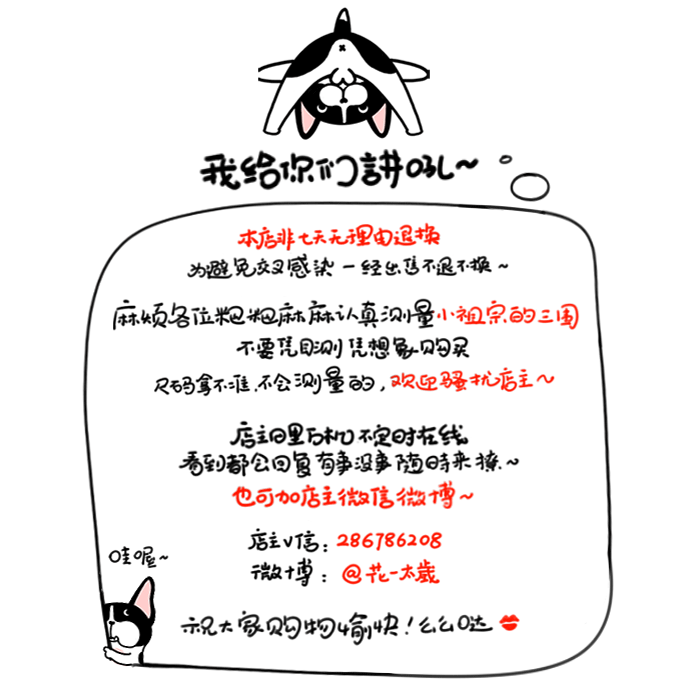 我给你们讲吼~
本店非七天无理由退换
为避免交叉感染一经出售不退不换~
麻烦各位粑粑麻麻认真测量小祖宗的三围
不要凭目测凭想象购买
尺码拿不准,不会测量的,欢迎骚扰店主~
店主日理万机不定时在线
看到都会回复有事没事随时来撩~
也可加店主微信微博~
店主V信:286786208
微博:@花一太歲
哇喔~
祝大家购物愉快!么么哒